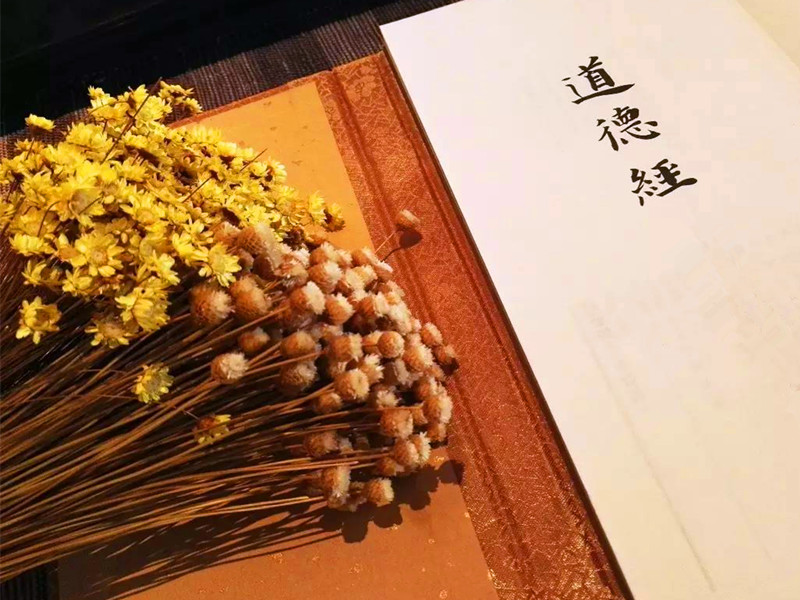 道德經